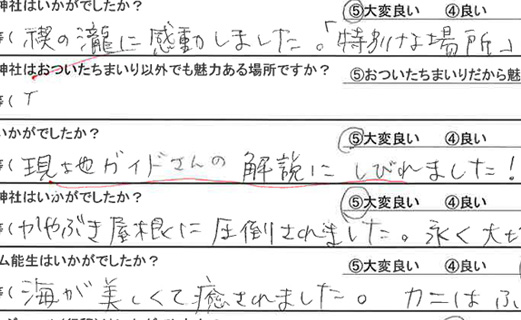 神社はいかがでしたか？ ⑤大変良い ④良い
（禊の瀧に感動しました。「特別な場所」
神社はおついたちまいり以外でも魅力ある場所ですか？ ⑤おついたちまいりだから魅
（
いかがでしたか？ ⑤大変良い ④良い
（現地ガイドさんの解説にしびれました！
神社はいかがでしたか？ ⑤大変良い ④良い
（かやぶき屋根に圧倒されました。永く大
ム能生はいかがでしたか？ ⑤大変良い ④良い
（海が美しくて癒されました。カニはふ